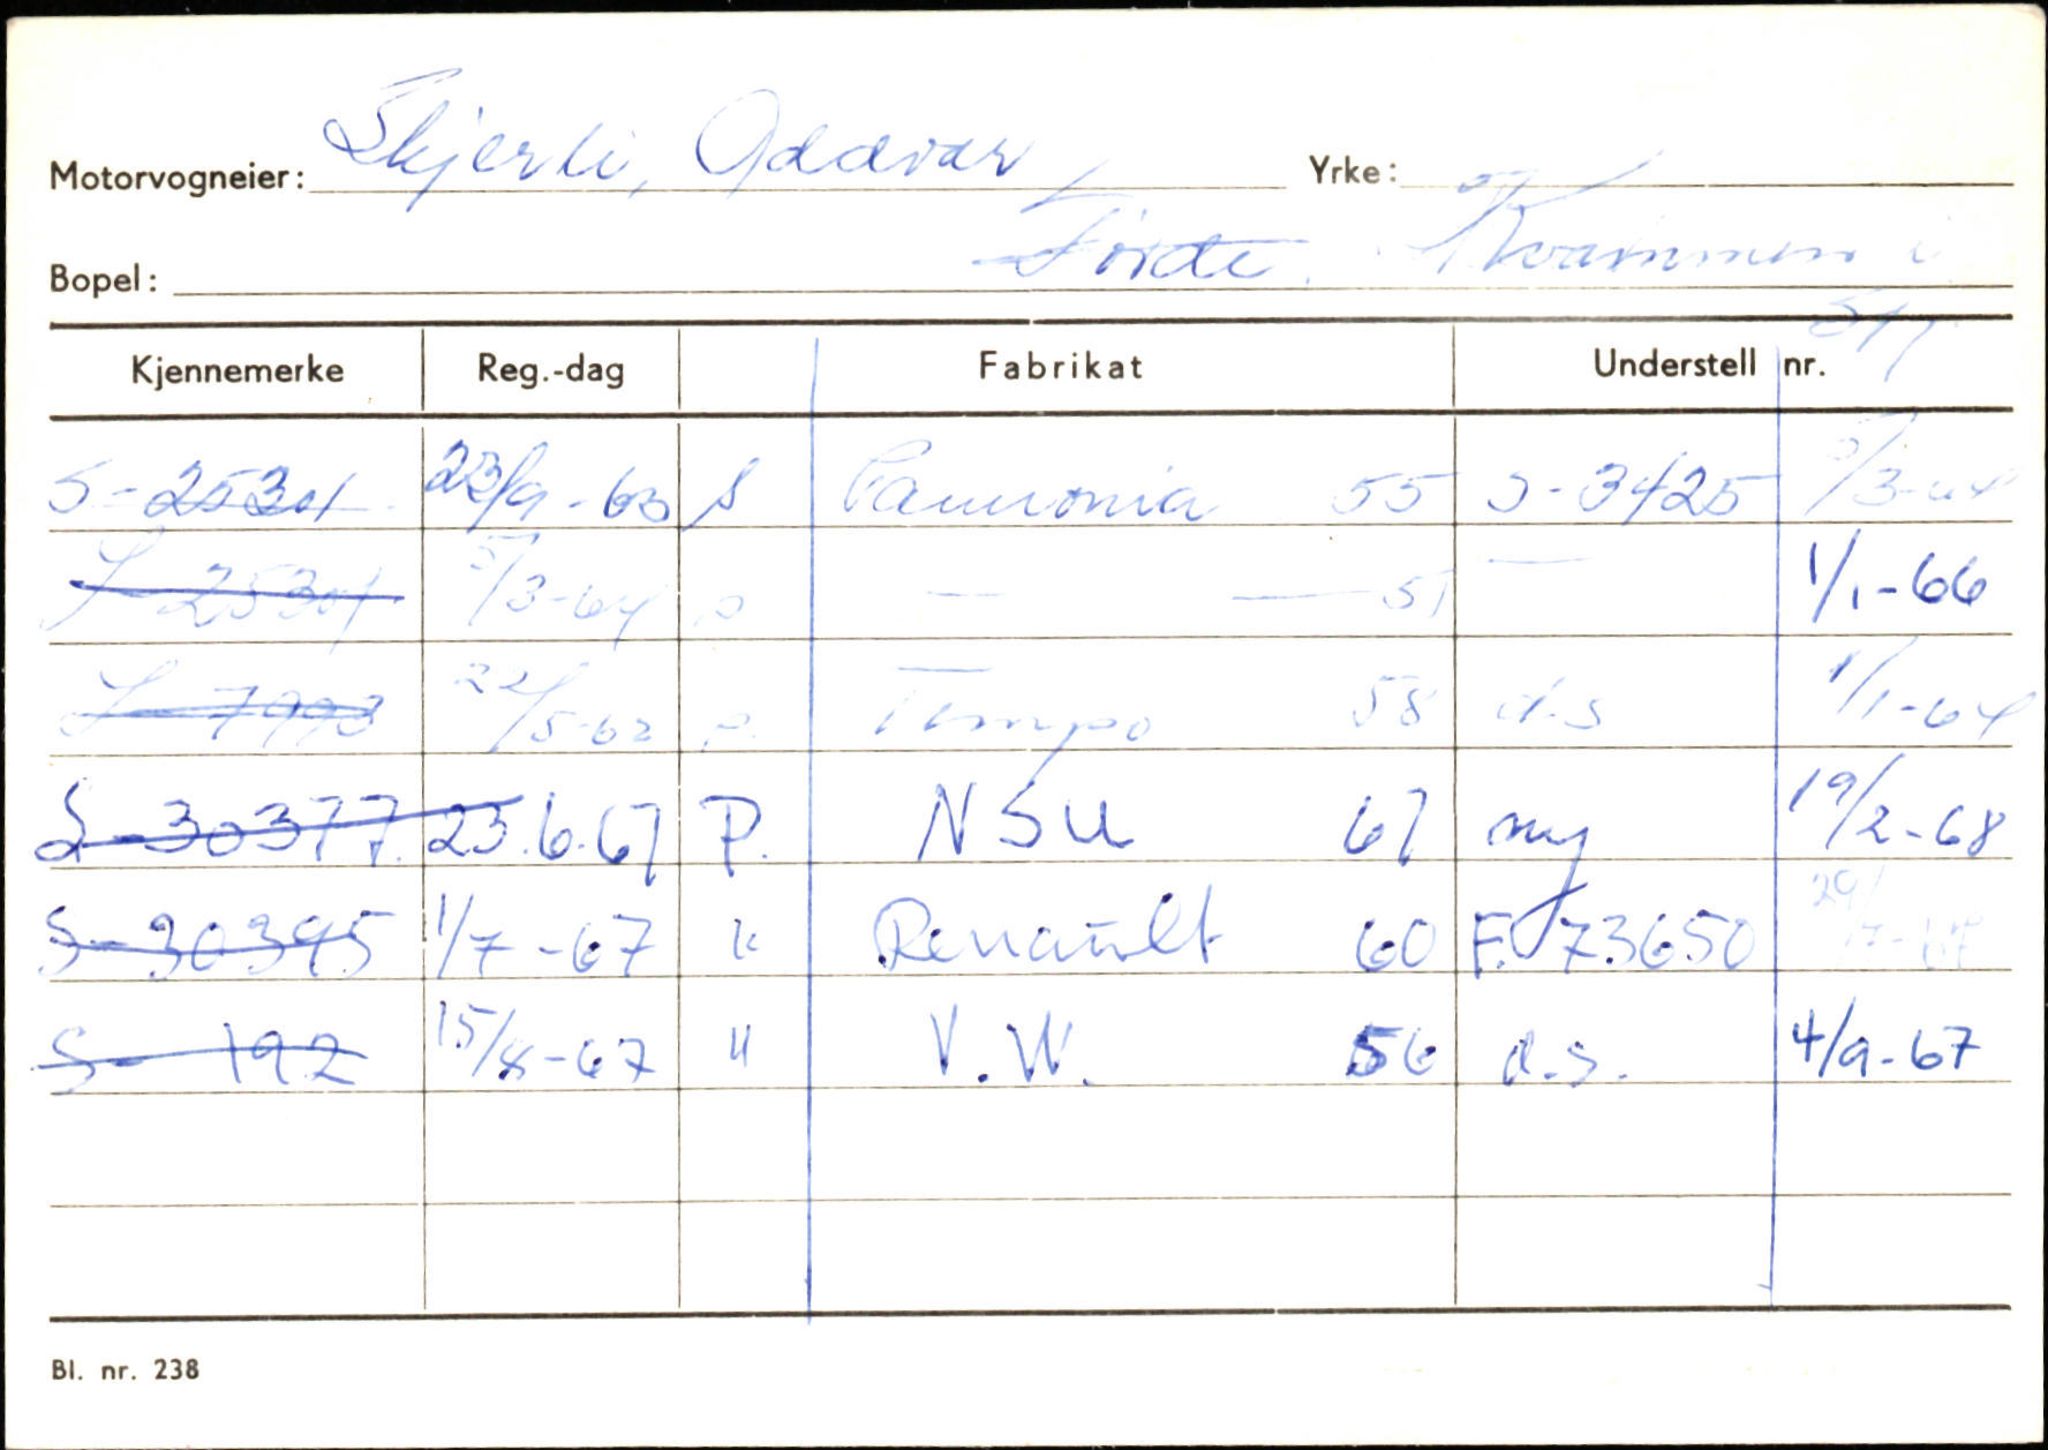 Motorvogneier: Skjerli, Oddvar, Yrke:
Bopel: Førde. Kvammen i
Kjennemerke Reg.-dag Fabrikat Understell nr.
S-25301 23/9-63 s Pannonia 55 S-3425 5/3-64
S-25301 5/3-64 p — — 51 — 1/1-66
S-7993 22/5-62 p. Tempo 58 d.s 1/1-64
S-30377. 23.6.67 P. NSU 67 ny 19/2-68
S-30395 1/7-67 " Renault 60 F. 73650
S-192 15/8-67 " V.W. 56 d.s. 4/9-67
Bl. nr. 238